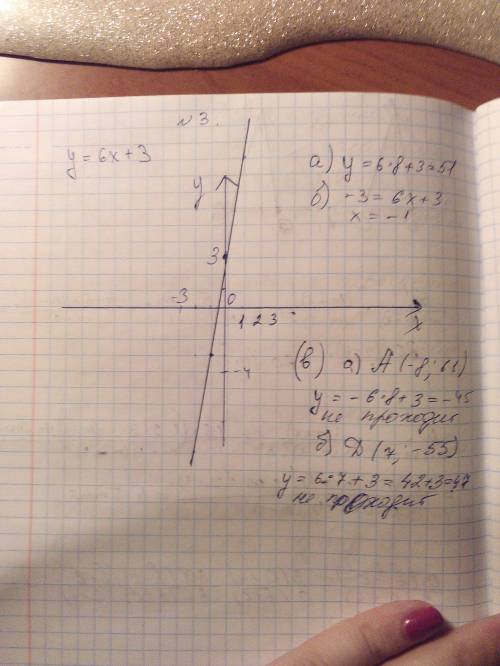 №3.
y = 6x+3
а) y = 6·8+3=51
б) -3 = 6x+3
x = -1
y
3
-3
0
1 2 3
x
-4
(в) а) A (-8; 61)
y = -6·8+3 = -45
не проходит
б) D (7; -55)
y = 6·7 + 3 = 42+3=47
не проходит